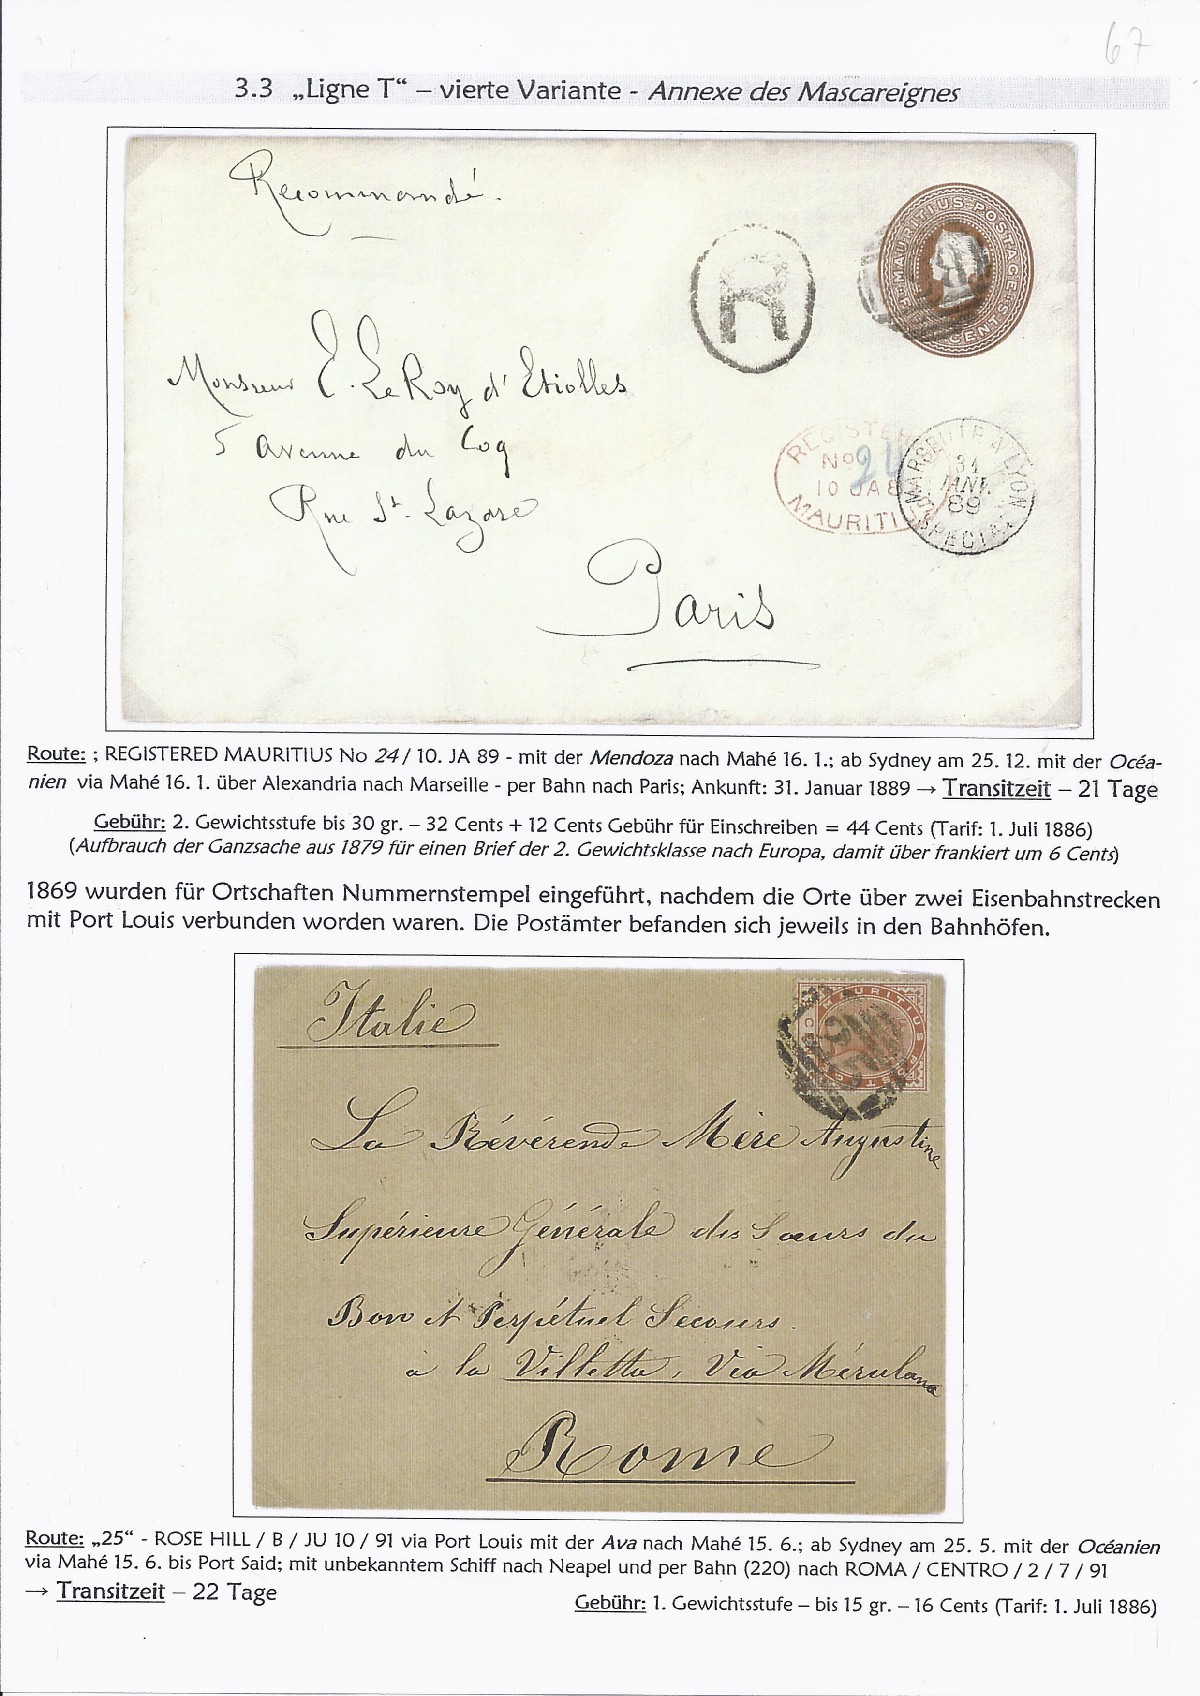 67
3.3 „Ligne T“ – vierte Variante - Annexe des Mascareignes
Recommandé.
MAURITIUS POSTAGE
CENTS
R
B
Monsieur E. LeRoy d'Etiolles
5 avenue du Coq
Rue St. Lazare
Paris
REGISTER
No 24
10 JA 8
MAURITIUS
MARSEILLE A LYON
31
JANV.
89
SPECIAL
Route: ; REGISTERED MAURITIUS No 24 / 10. JA 89 - mit der Mendoza nach Mahé 16. 1.; ab Sydney am 25. 12. mit der Océa-
nien via Mahé 16. 1. über Alexandria nach Marseille - per Bahn nach Paris; Ankunft: 31. Januar 1889 → Transitzeit – 21 Tage
Gebühr: 2. Gewichtsstufe bis 30 gr. – 32 Cents + 12 Cents Gebühr für Einschreiben = 44 Cents (Tarif: 1. Juli 1886)
(Aufbrauch der Ganzsache aus 1879 für einen Brief der 2. Gewichtsklasse nach Europa, damit über frankiert um 6 Cents)
1869 wurden für Ortschaften Nummernstempel eingeführt, nachdem die Orte über zwei Eisenbahnstrecken
mit Port Louis verbunden worden waren. Die Postämter befanden sich jeweils in den Bahnhöfen.
MAURITIUS
Italie
La Révérende Mère Augustine
Supérieure Générale des Sœurs du
Bon et Perpétuel Secours.
à la Villetta, Via Mérulana
Rome
Route: „25“ - ROSE HILL / B / JU 10 / 91 via Port Louis mit der Ava nach Mahé 15. 6.; ab Sydney am 25. 5. mit der Océanien
via Mahé 15. 6. bis Port Said; mit unbekanntem Schiff nach Neapel und per Bahn (220) nach ROMA / CENTRO / 2 / 7 / 91
→ Transitzeit – 22 Tage
Gebühr: 1. Gewichtsstufe – bis 15 gr. – 16 Cents (Tarif: 1. Juli 1886)